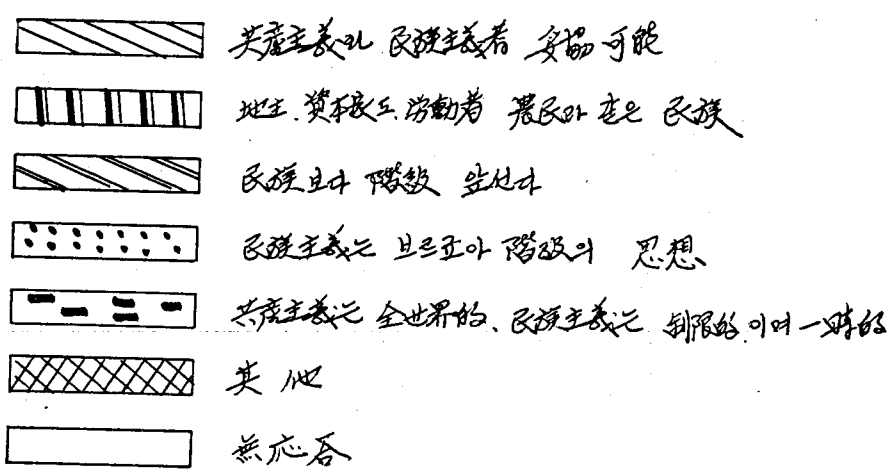 共產主義와 民族主義者 妥協 可能
地主、資本家도、労動者 農民과 같은 民族
民族보다 階級 앞선다
民族主義는 브르죠아 階級의 思想
共產主義는 全世界的、民族主義는 制限的이며 一時的
其 他
無応答